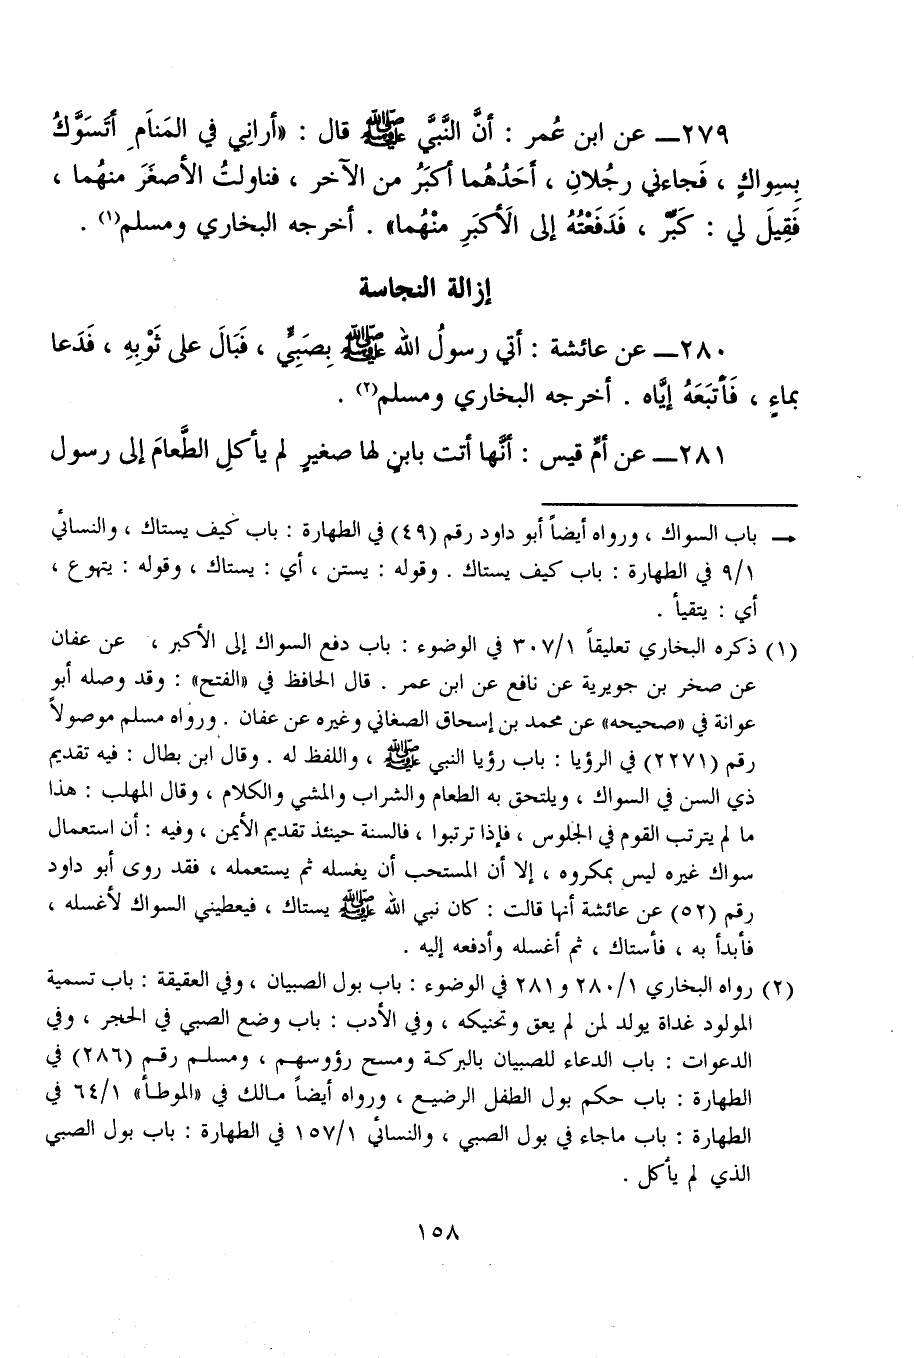 ٢٧٩ــ عن ابن عُمر : أنَّ النَّبيَّ ﷺ قال : «أراني في المَنَامِ أَتَسَوَّكُ
بِسِواكٍ ، فَجاءني رجُلانِ ، أحَدُهُما أكبَرُ من الآخر ، فناولتُ الأصغَرَ منهُما ،
فَقِيلَ لي : كَبِّر ، فَدَفَعْتُهُ إلى الَأكبَرِ منْهُما» . أخرجه البخاري ومسلم(١) .
إزالة النجاسة
٢٨٠ــ عن عائشة : أتي رسولُ الله ﷺ بِصَبِيٍّ ، فَبَالَ على ثَوْبِهِ ، فَدَعا
بماءٍ ، فَأَتبَعَهُ إيَّاه . أخرجه البخاري ومسلم(٢) .
٢٨١ــ عن أمِّ قيس : أنَّها أتت بابنٍ لها صغيرٍ لم يأكلِ الطَّعامَ إلى رسول
→ باب السواك ، ورواه أيضاً أبو داود رقم (٤٩) في الطهارة : باب كيف يستاك ، والنسائي
٩/١ في الطهارة : باب كيف يستاك . وقوله : يستن ، أي : يستاك ، وقوله : يتهوع ،
أي : يتقيأ .
(١) ذكره البخاري تعليقاً ٣٠٧/١ في الوضوء : باب دفع السواك إلى الأكبر ، عن عفان
عن صخر بن جويرية عن نافع عن ابن عمر . قال الحافظ في «الفتح» : وقد وصله أبو
عوانة في «صحيحه» عن محمد بن إسحاق الصغاني وغيره عن عفان . ورواه مسلم موصولاً
رقم (٢٢٧١) في الرؤيا : باب رؤيا النبي ﷺ ، واللفظ له . وقال ابن بطال : فيه تقديم
ذي السن في السواك ، ويلتحق به الطعام والشراب والمشي والكلام ، وقال المهلب : هذا
ما لم يترتب القوم في الجلوس ، فإذا ترتبوا ، فالسنة حينئذ تقديم الأيمن ، وفيه : أن استعمال
سواك غيره ليس بمكروه ، إلا أن المستحب أن يغسله ثم يستعمله ، فقد روى أبو داود
رقم (٥٢) عن عائشة أنها قالت : كان نبي الله ﷺ يستاك ، فيعطيني السواك لأغسله ،
فأبدأ به ، فأستاك ، ثم أغسله وأدفعه إليه .
(٢) رواه البخاري ٢٨٠/١ و ٢٨١ في الوضوء : باب بول الصبيان ، وفي العقيقة : باب تسمية
المولود غداة يولد لمن لم يعق وتحنيكه ، وفي الأدب : باب وضع الصبي في الحجر ، وفي
الدعوات : باب الدعاء للصبيان بالبركة ومسح رؤوسهم ، ومسلم رقم (٢٨٦) في
الطهارة : باب حكم بول الطفل الرضيع ، ورواه أيضاً مالك في «الموطأ» ٦٤/١ في
الطهارة : باب ماجاء في بول الصبي ، والنسائي ١٥٧/١ في الطهارة : باب بول الصبي
الذي لم يأكل .
١٥٨